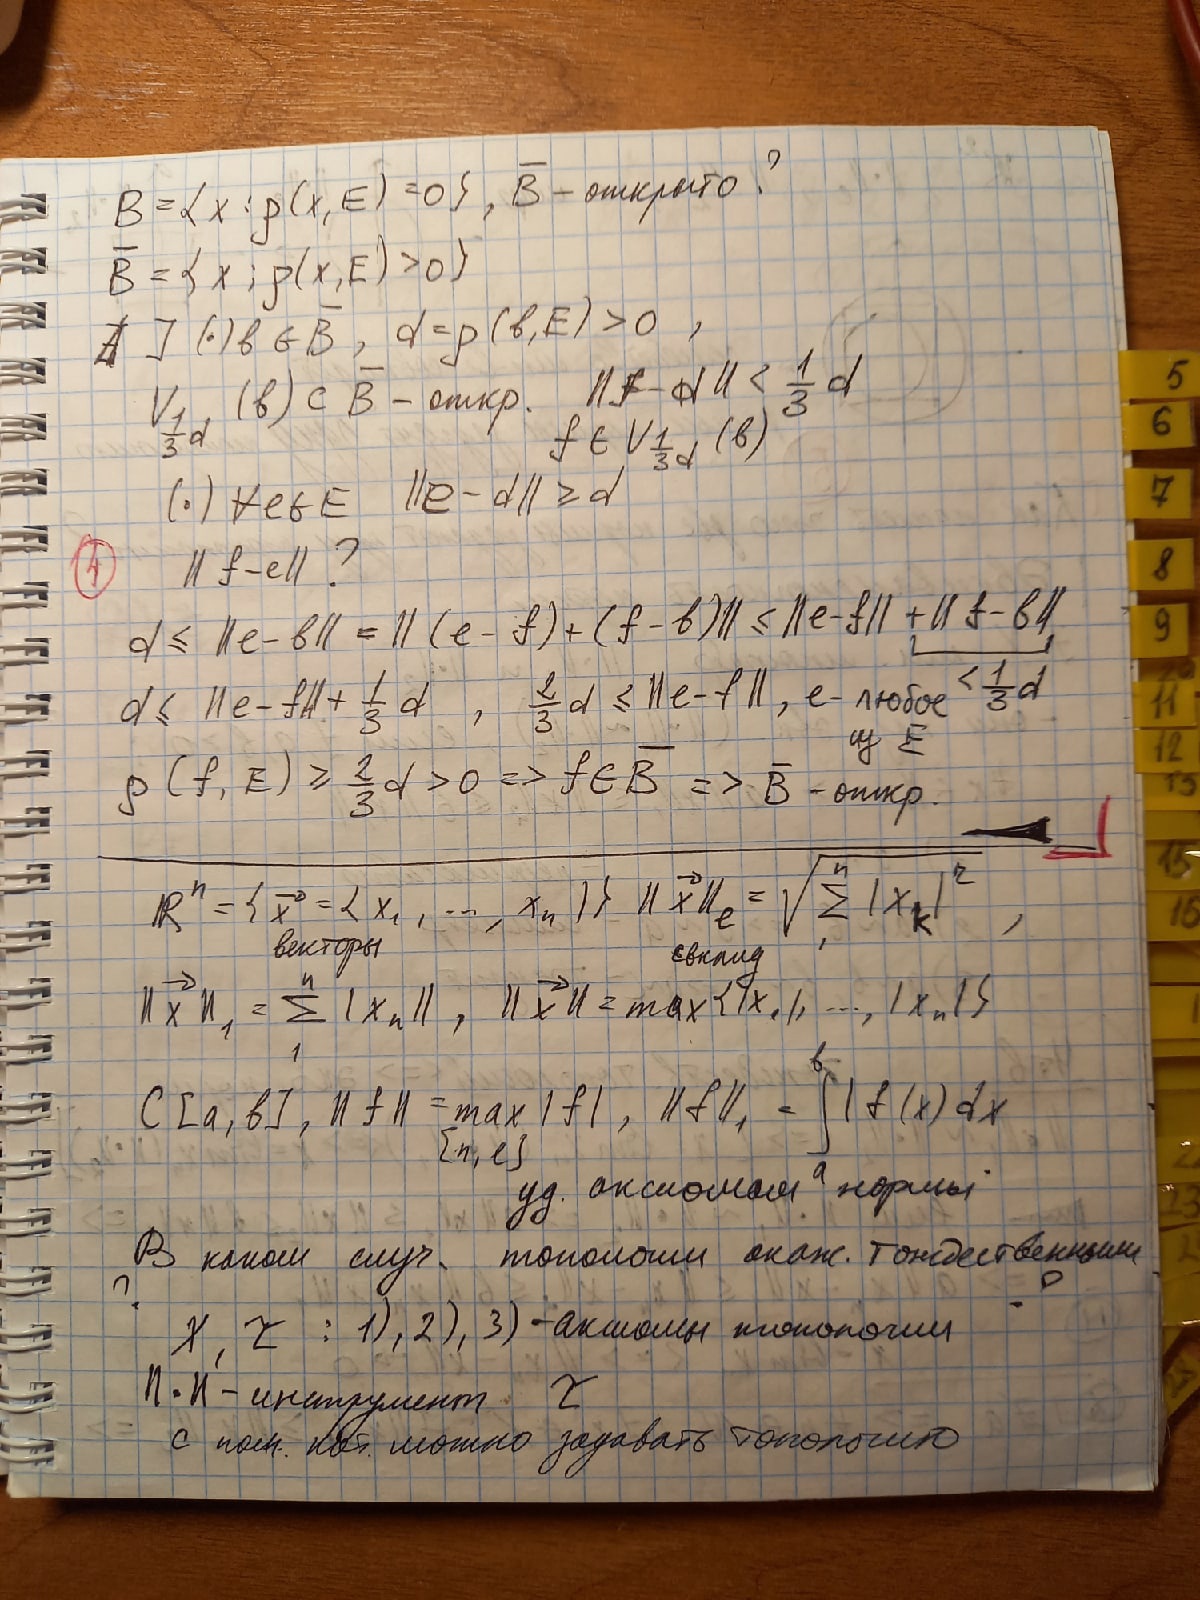 B = {x : ρ(x, E) = 0}, B̅ - открыто?
B̅ = {x ; ρ(x, E) > 0}
] (·) в ∈ B̅, d = ρ(в, E) > 0,
V_{1/3 d} (в) ⊂ B̅ - откр. ||f - d|| < 1/3 d
f ∈ V_{1/3 d} (в)
(·) ∀ e ∈ E ||e - d|| ≥ d
4
|| f - e || ?
d ≤ ||e - в|| = ||(e - f) + (f - в)|| ≤ ||e - f|| + ||f - в||
d ≤ ||e - f|| + 1/3 d , 2/3 d ≤ ||e - f||, e - любое < 1/3 d
из E
ρ(f, E) ≥ 2/3 d > 0 => f ∈ B̅ => B̅ - откр.
ℝⁿ = {x⃗ = {x₁, ..., xₙ}} ||x⃗||_e = √(∑₁ⁿ |x_k|²) ,
векторы евклид
||x⃗||₁ = ∑₁ⁿ |xₙ||, ||x⃗|| = max{|x₁|, ..., |xₙ|}
C[a, в], ||f|| = max |f|, ||f||₁ = ∫ₐᵇ |f(x) dx
уд. аксиомам нормы
В каком случ. топологии окаж. тождественными
?
X, τ : 1), 2), 3) - аксиомы топологии
||·|| - инструмент τ
с пом. кот. можно задавать топологию
5
6
7
8
9
11
12
13
15
16